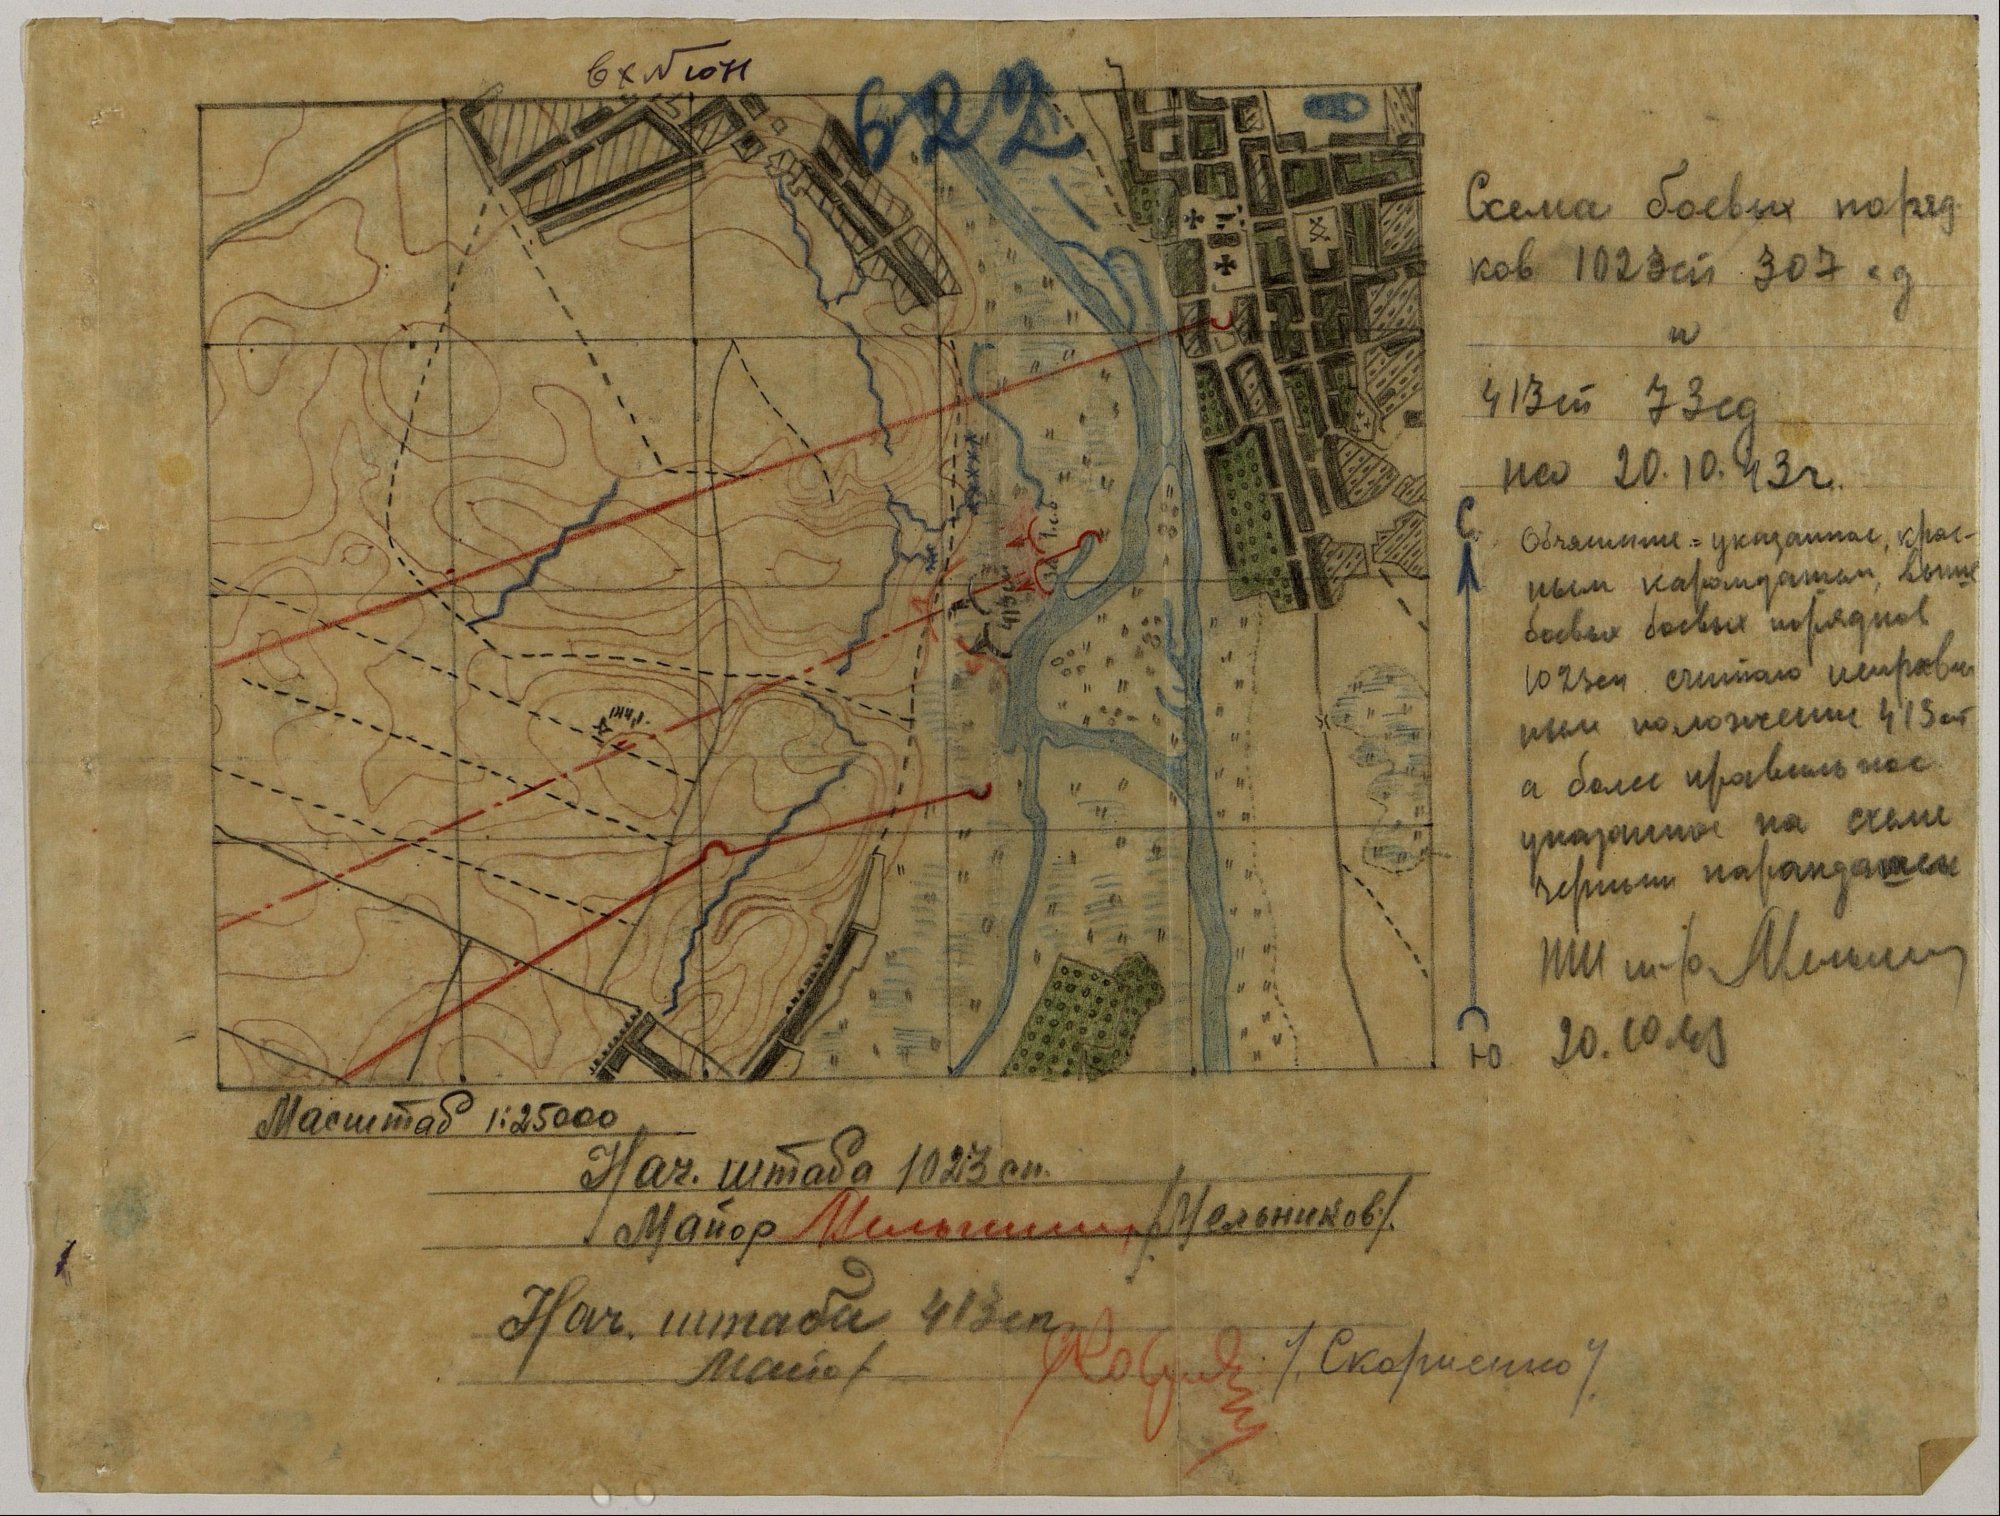 вх №
622
Схема боевых поряд
ков 1023сп 307 сд
и
413сп 73сд
на 20.10.43г.
С
Объяснение = указанное, крас-
ным карандашом, выше
боевых боевых порядков
1023сп считаю неправиль
ным положение 413сп
а более правильное
указанное на схеме
черным карандашом
20.10.43
Ю
1сб
413сп
Масштаб 1:25000
Нач. штаба 1023 сп.
Майор /Мельников/.
Нач. штаба 413сп
Майор /Скорченко/